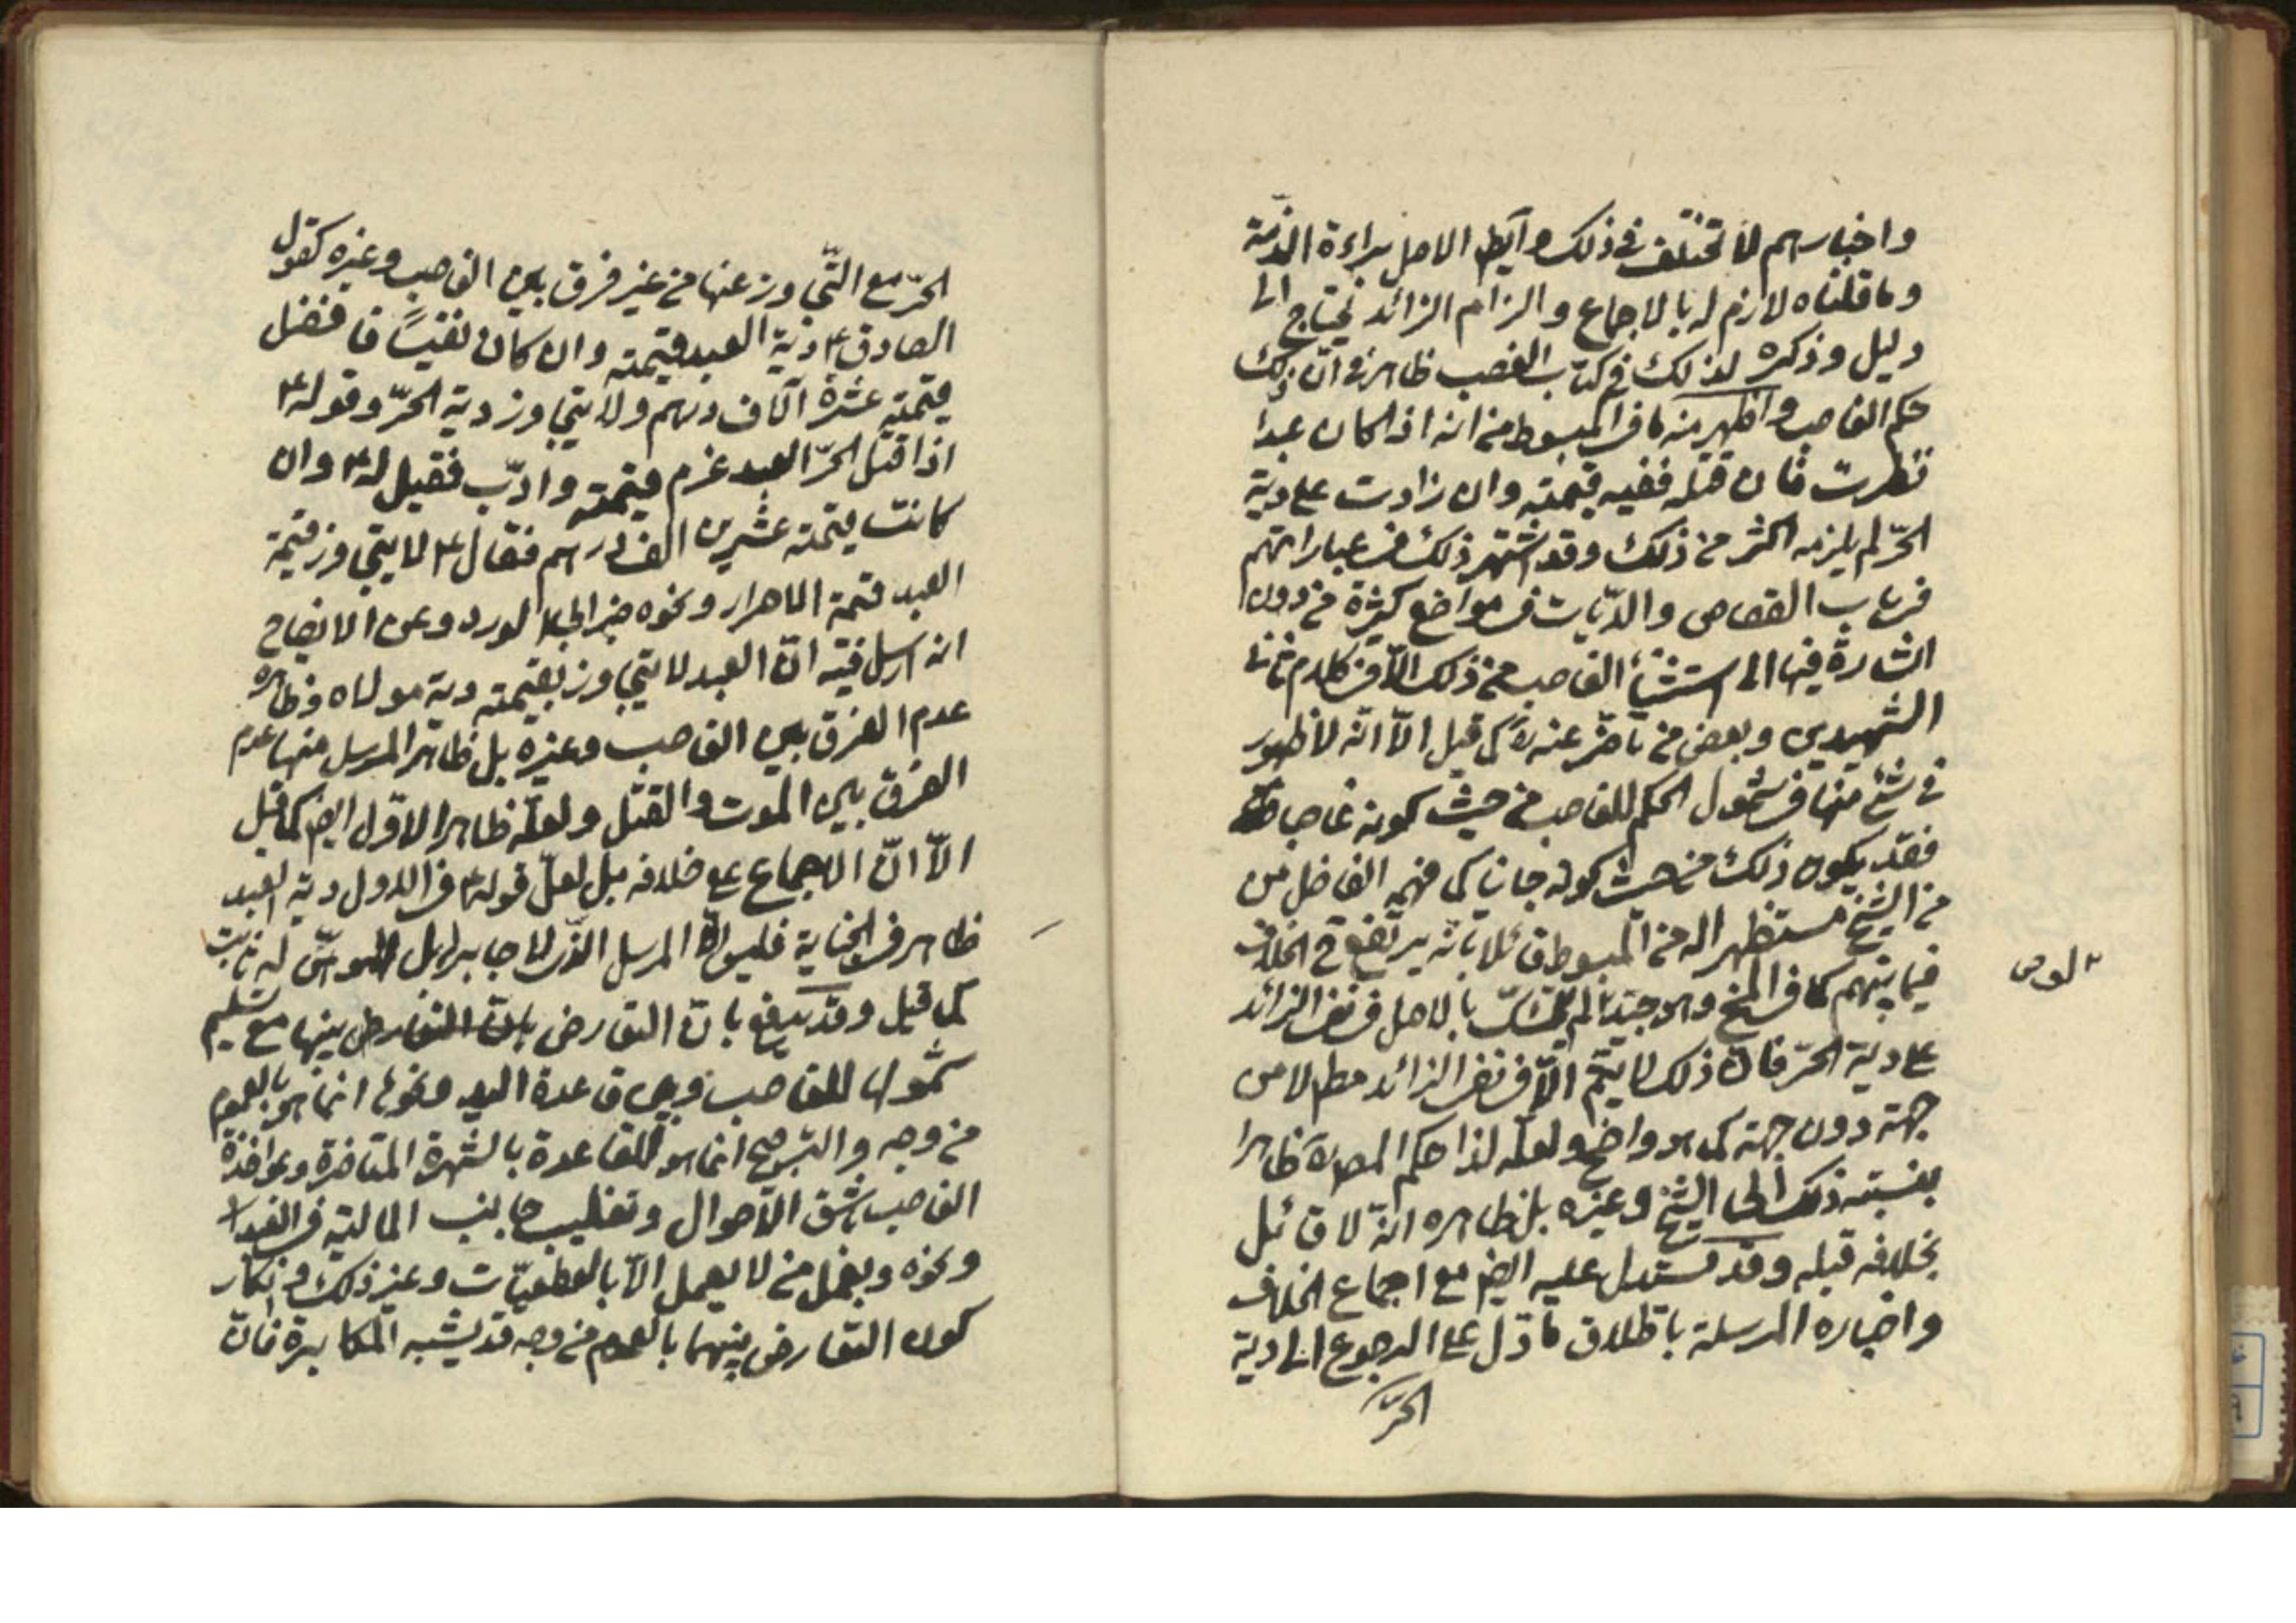 واخبارهم لا تختلف في ذلك وأيضا الاصل براءة الذمّة
وما قلناه لازم له بالاجماع والزام الزائد يحتاج الى
دليل وذكره لذلك في كتاب الغصب ظاهر في انّ ذلك
حكم الغاصب واظهر منه ما في المبسوط من انه اذا كان عبدا
نظرت فان قتله ففيه قيمته وان زادت على دية
الحرّ لم يلزمه اكثر من ذلك وقد اشتهر ذلك في عباراتهم
في باب القصاص والديّات في مواضع كثيرة من دون
اشارة فيها الى استثناء الغاصب من ذلك الّا في كلام ثاني
الشهيدين وبعض من تاخّر عنه كما قيل الّا انّه لا ظهور
في شئ منها في شمول الحكم للغاصب من حيث كونه غاصبا
فقد يكون ذلك من حيث كونه جانيا كما فهمه الفاضل من
من الشيخ مستظهرا له من المبسوط قائلا بانّه يرتفع ح الخلاف
فيما بينهم كما في المخ وهو جيّد لو لم يتمسّك بالاصل في نفى الزائد
على دية الحرّ فانّ ذلك لا يتمّ الّا في نفى الزائد مطم لا من
جهة دون جهة كما هو واضح ولعلّه لذا حكم المص ظاهرا
بنسبته ذلك الى الشيخ وغيره بل ظاهره انّه لا قائل
بخلافه قبله وقد يستدل عليه ايضا مع اجماع الخلاف
واخباره المرسلة باطلاق ما دل على الرجوع الى دية
الحرّ
الحرّ مع التجاوز عنها من غير فرق بين الغاصب وغيره كقول
الصادق ع دية العبد قيمته وان كان نفيساً فافضل
قيمته عشرة آلاف درهم ولا يتجاوز دية الحرّ وقوله ع
اذا قتل الحرّ العبد غرم قيمته وادّب فقيل له ع وان
كانت قيمته عشرين الف درهم فقال ع لا يتجاوز قيمة
العبد قيمة الاحرار ونحوه خبر ابي الورد وعن الايضاح
انه ارسل فيه انّ العبد لا يتجاوز بقيمته دية مولاه وظاهره
عدم الفرق بين الغاصب وغيره بل ظاهر المرسل منها عدم
الفرق بين الموت والقتل ولعلّه ظاهر الاوّل ايضا كما قيل
الّا انّ الاجماع على خلافه بل لعلّ قوله ع في الاول دية العبد
ظاهر في الجناية فليس الّا المرسل الذى لا جابر له بل الموهن له ثابت
كما قيل وقد يدفع بانّ التعارض بانّ التعارض بينها مع تسليم
شمولها للغاصب وبين قاعدة اليد ونحوها انما هو بالعموم
من وجه والترجيح انما هو للقاعدة بالشهرة المتاخرة ومؤاخذة
الغاصب باشق الاحوال وتغليب جانب المالية في العبد
ونحوه وبعمل من لا يعمل الّا بالقطعيّات وغير ذلك وانكار
كون التعارض بينهما بالعموم من وجه قد يشبه المكابرة فانّ